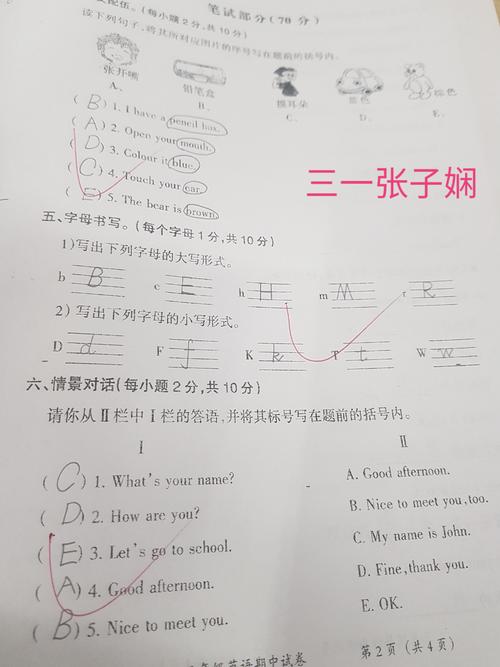 笔试部分(70分)
配伍。(每小题2分,共10分)
读下列句子,将其所对应图片的序号写在题前的括号内。
张开嘴 铅笔盒 摸耳朵 蓝色 棕色
A. B. C. D. E.
(B) 1. I have a pencil box.
(A) 2. Open your mouth.
(D) 3. Colour it blue.
(C) 4. Touch your ear.
(E) 5. The bear is brown.
三一张子娴
五、字母书写。(每个字母1分,共10分)
1)写出下列字母的大写形式。
b B e E h H m M r R
2)写出下列字母的小写形式。
D d F f K k T t W w
六、情景对话(每小题2分,共10分)
请你从Ⅱ栏中Ⅰ栏的答语,并将其标号写在题前的括号内。
Ⅰ Ⅱ
(C) 1. What's your name? A. Good afternoon.
(D) 2. How are you? B. Nice to meet you, too.
(E) 3. Let's go to school. C. My name is John.
(A) 4. Good afternoon. D. Fine, thank you.
(B) 5. Nice to meet you. E. OK.
年级英语期中试卷 第2页(共4页)